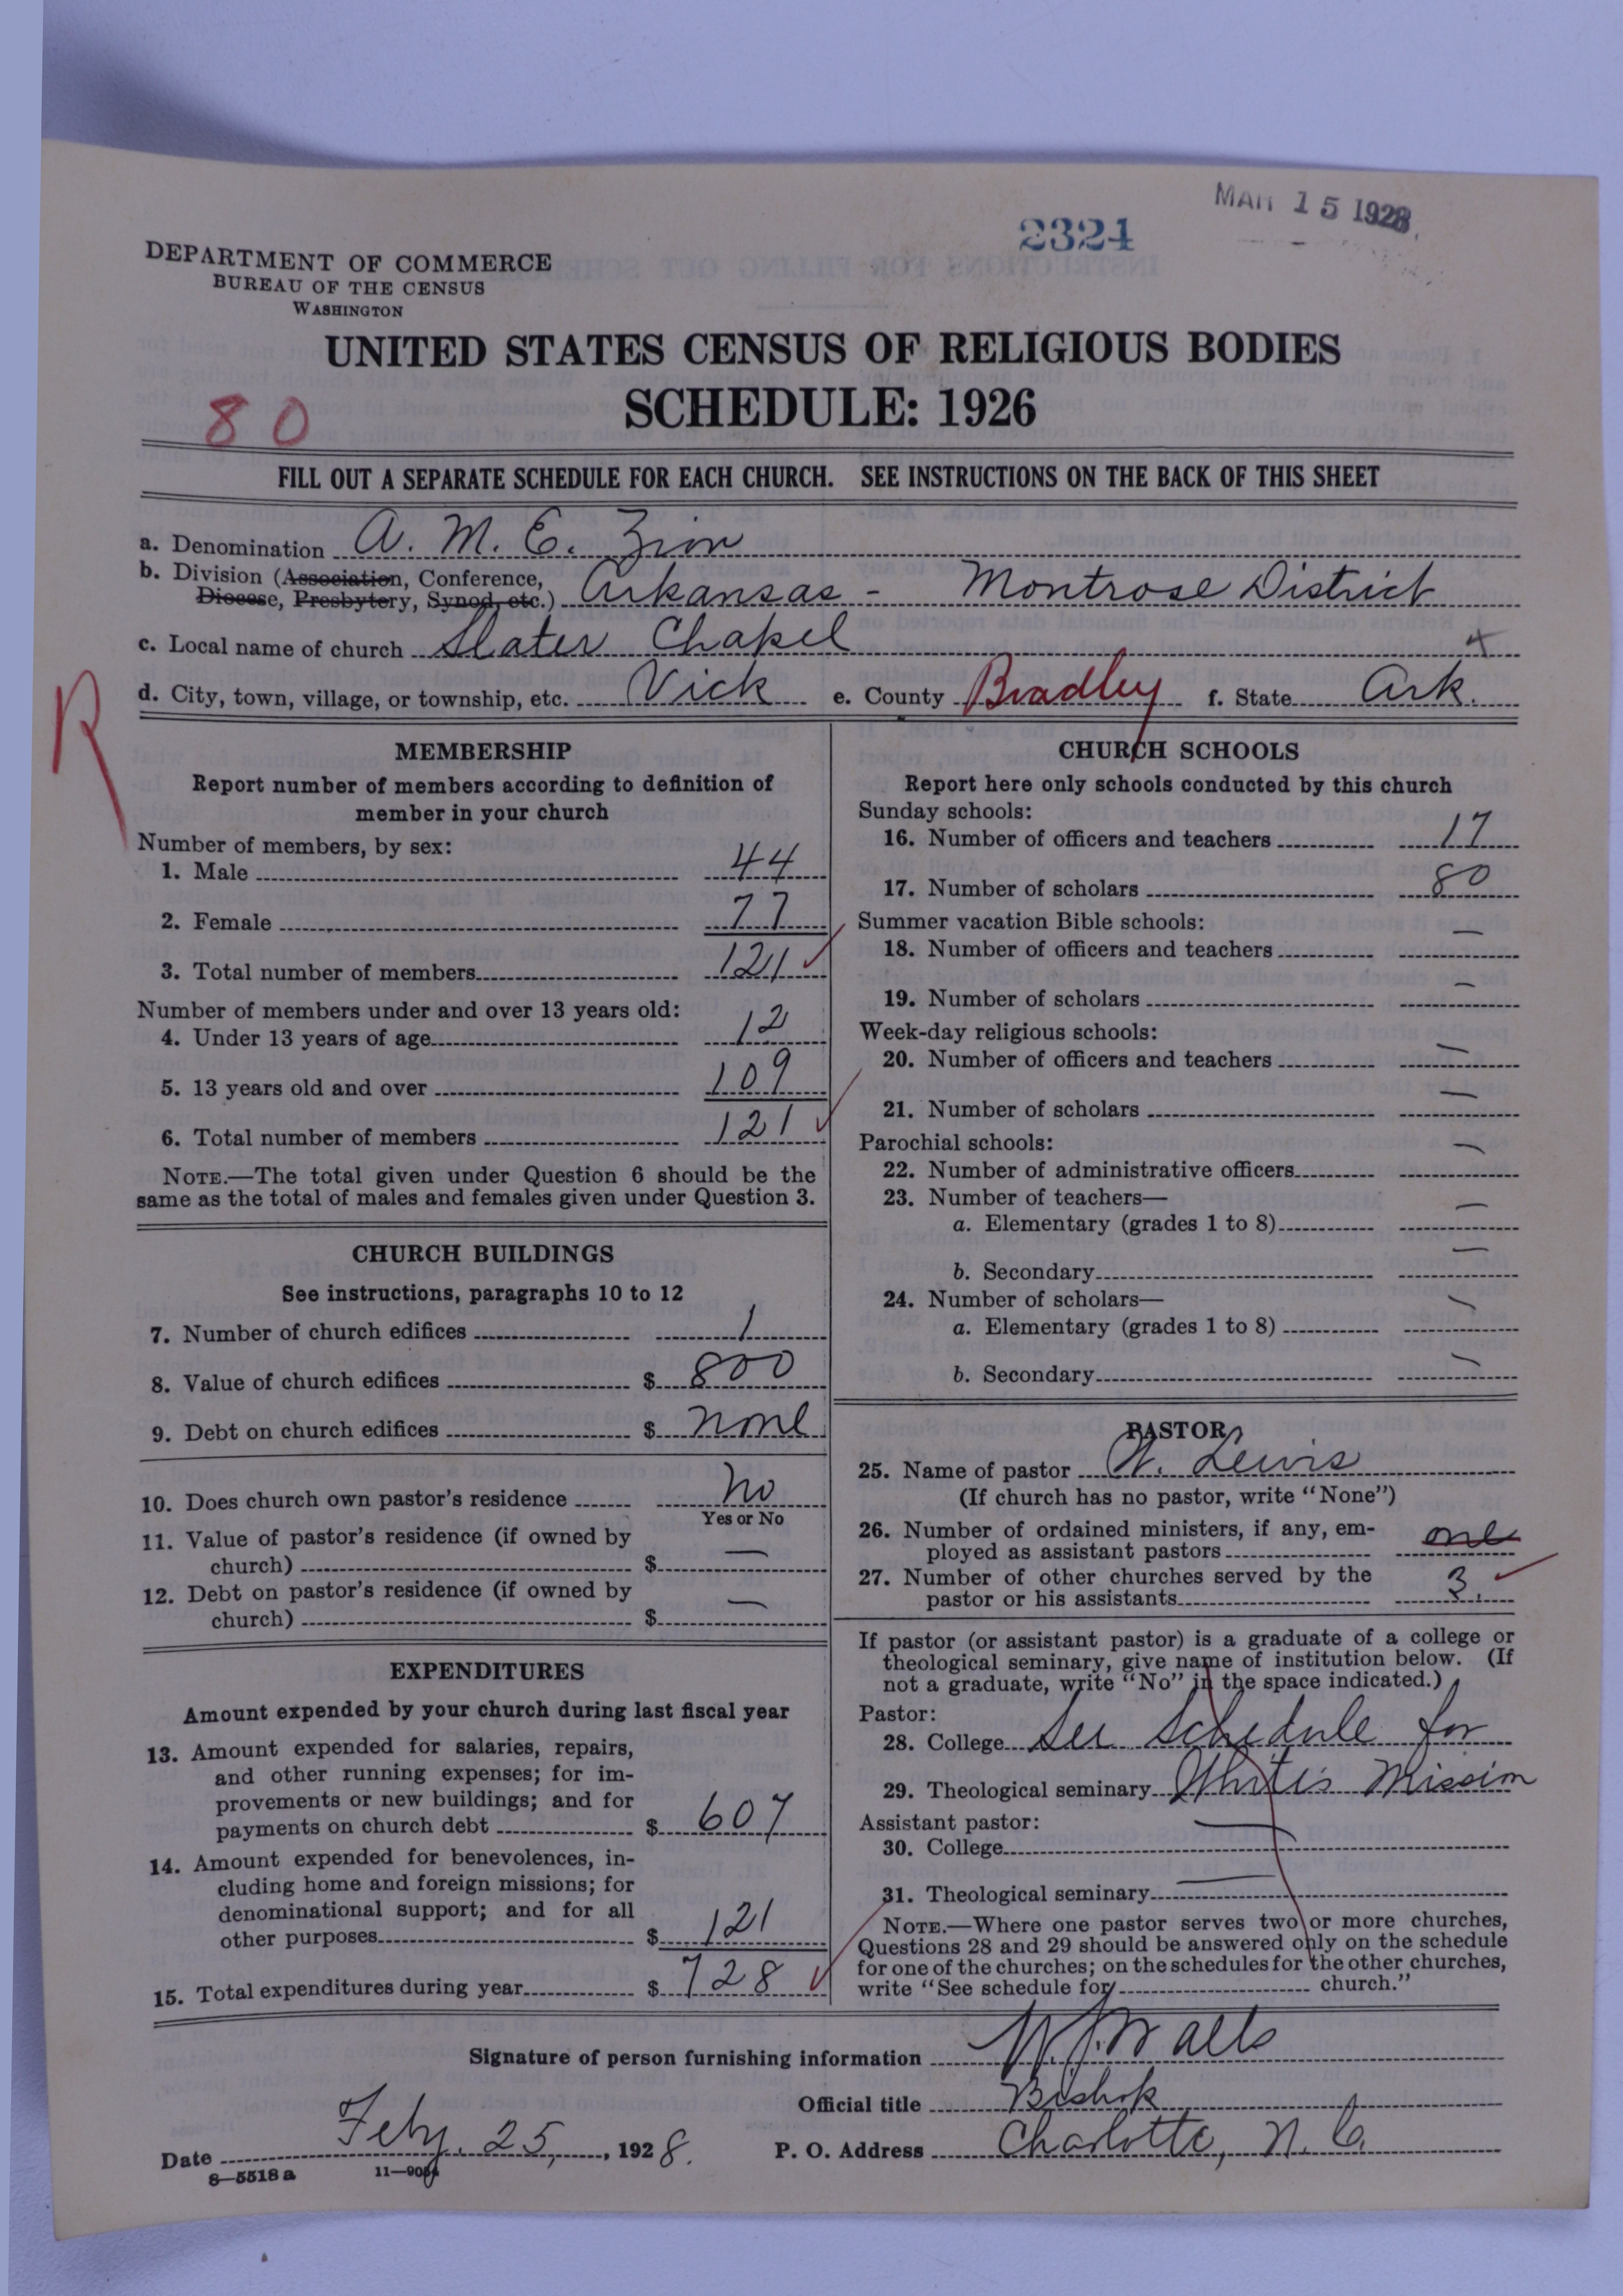 MAR 15 1928
2324
DEPARTMENT OF COMMERCE
BUREAU OF THE CENSUS
WASHINGTON
UNITED STATES CENSUS OF RELIGIOUS BODIES
SCHEDULE: 1926
80
FILL OUT A SEPARATE SCHEDULE FOR EACH CHURCH. SEE INSTRUCTIONS ON THE BACK OF THIS SHEET
a. Denomination A. M. E. Zion
b. Division (Association, Conference,
Diocese, Presbytery, Synod, etc.) Arkansas - Montrose District
c. Local name of church Slater Chapel
d. City, town, village, or township, etc. Vick e. County Bradley f. State Ark.
R
MEMBERSHIP
Report number of members according to definition of
member in your church
Number of members, by sex:
1. Male 44
2. Female 77
3. Total number of members 121
Number of members under and over 13 years old:
4. Under 13 years of age 12
5. 13 years old and over 109
6. Total number of members 121
NOTE.—The total given under Question 6 should be the
same as the total of males and females given under Question 3.
CHURCH BUILDINGS
See instructions, paragraphs 10 to 12
7. Number of church edifices 1
8. Value of church edifices $ 800
9. Debt on church edifices $ none
10. Does church own pastor's residence No
Yes or No
11. Value of pastor's residence (if owned by
church) $ —
12. Debt on pastor's residence (if owned by
church) $ —
EXPENDITURES
Amount expended by your church during last fiscal year
13. Amount expended for salaries, repairs,
and other running expenses; for im-
provements or new buildings; and for
payments on church debt $ 607
14. Amount expended for benevolences, in-
cluding home and foreign missions; for
denominational support; and for all
other purposes $ 121
15. Total expenditures during year $ 728
CHURCH SCHOOLS
Report here only schools conducted by this church
Sunday schools:
16. Number of officers and teachers 17
17. Number of scholars 80
Summer vacation Bible schools:
18. Number of officers and teachers —
19. Number of scholars —
Week-day religious schools:
20. Number of officers and teachers —
21. Number of scholars —
Parochial schools:
22. Number of administrative officers —
23. Number of teachers—
a. Elementary (grades 1 to 8) —
b. Secondary —
24. Number of scholars—
a. Elementary (grades 1 to 8) —
b. Secondary —
PASTOR
25. Name of pastor W. Lewis
(If church has no pastor, write "None")
26. Number of ordained ministers, if any, em-
ployed as assistant pastors one
27. Number of other churches served by the
pastor or his assistants 3.
If pastor (or assistant pastor) is a graduate of a college or
theological seminary, give name of institution below. (If
not a graduate, write "No" in the space indicated.)
Pastor:
28. College See Schedule for
29. Theological seminary White's Mission
Assistant pastor:
30. College —
31. Theological seminary —
NOTE.—Where one pastor serves two or more churches,
Questions 28 and 29 should be answered only on the schedule
for one of the churches; on the schedules for the other churches,
write "See schedule for church."
Signature of person furnishing information W. J. Walls
Official title Bishop
Date Feby. 25, 1928. P. O. Address Charlotte, N. C.
8—5518 a 11—9054